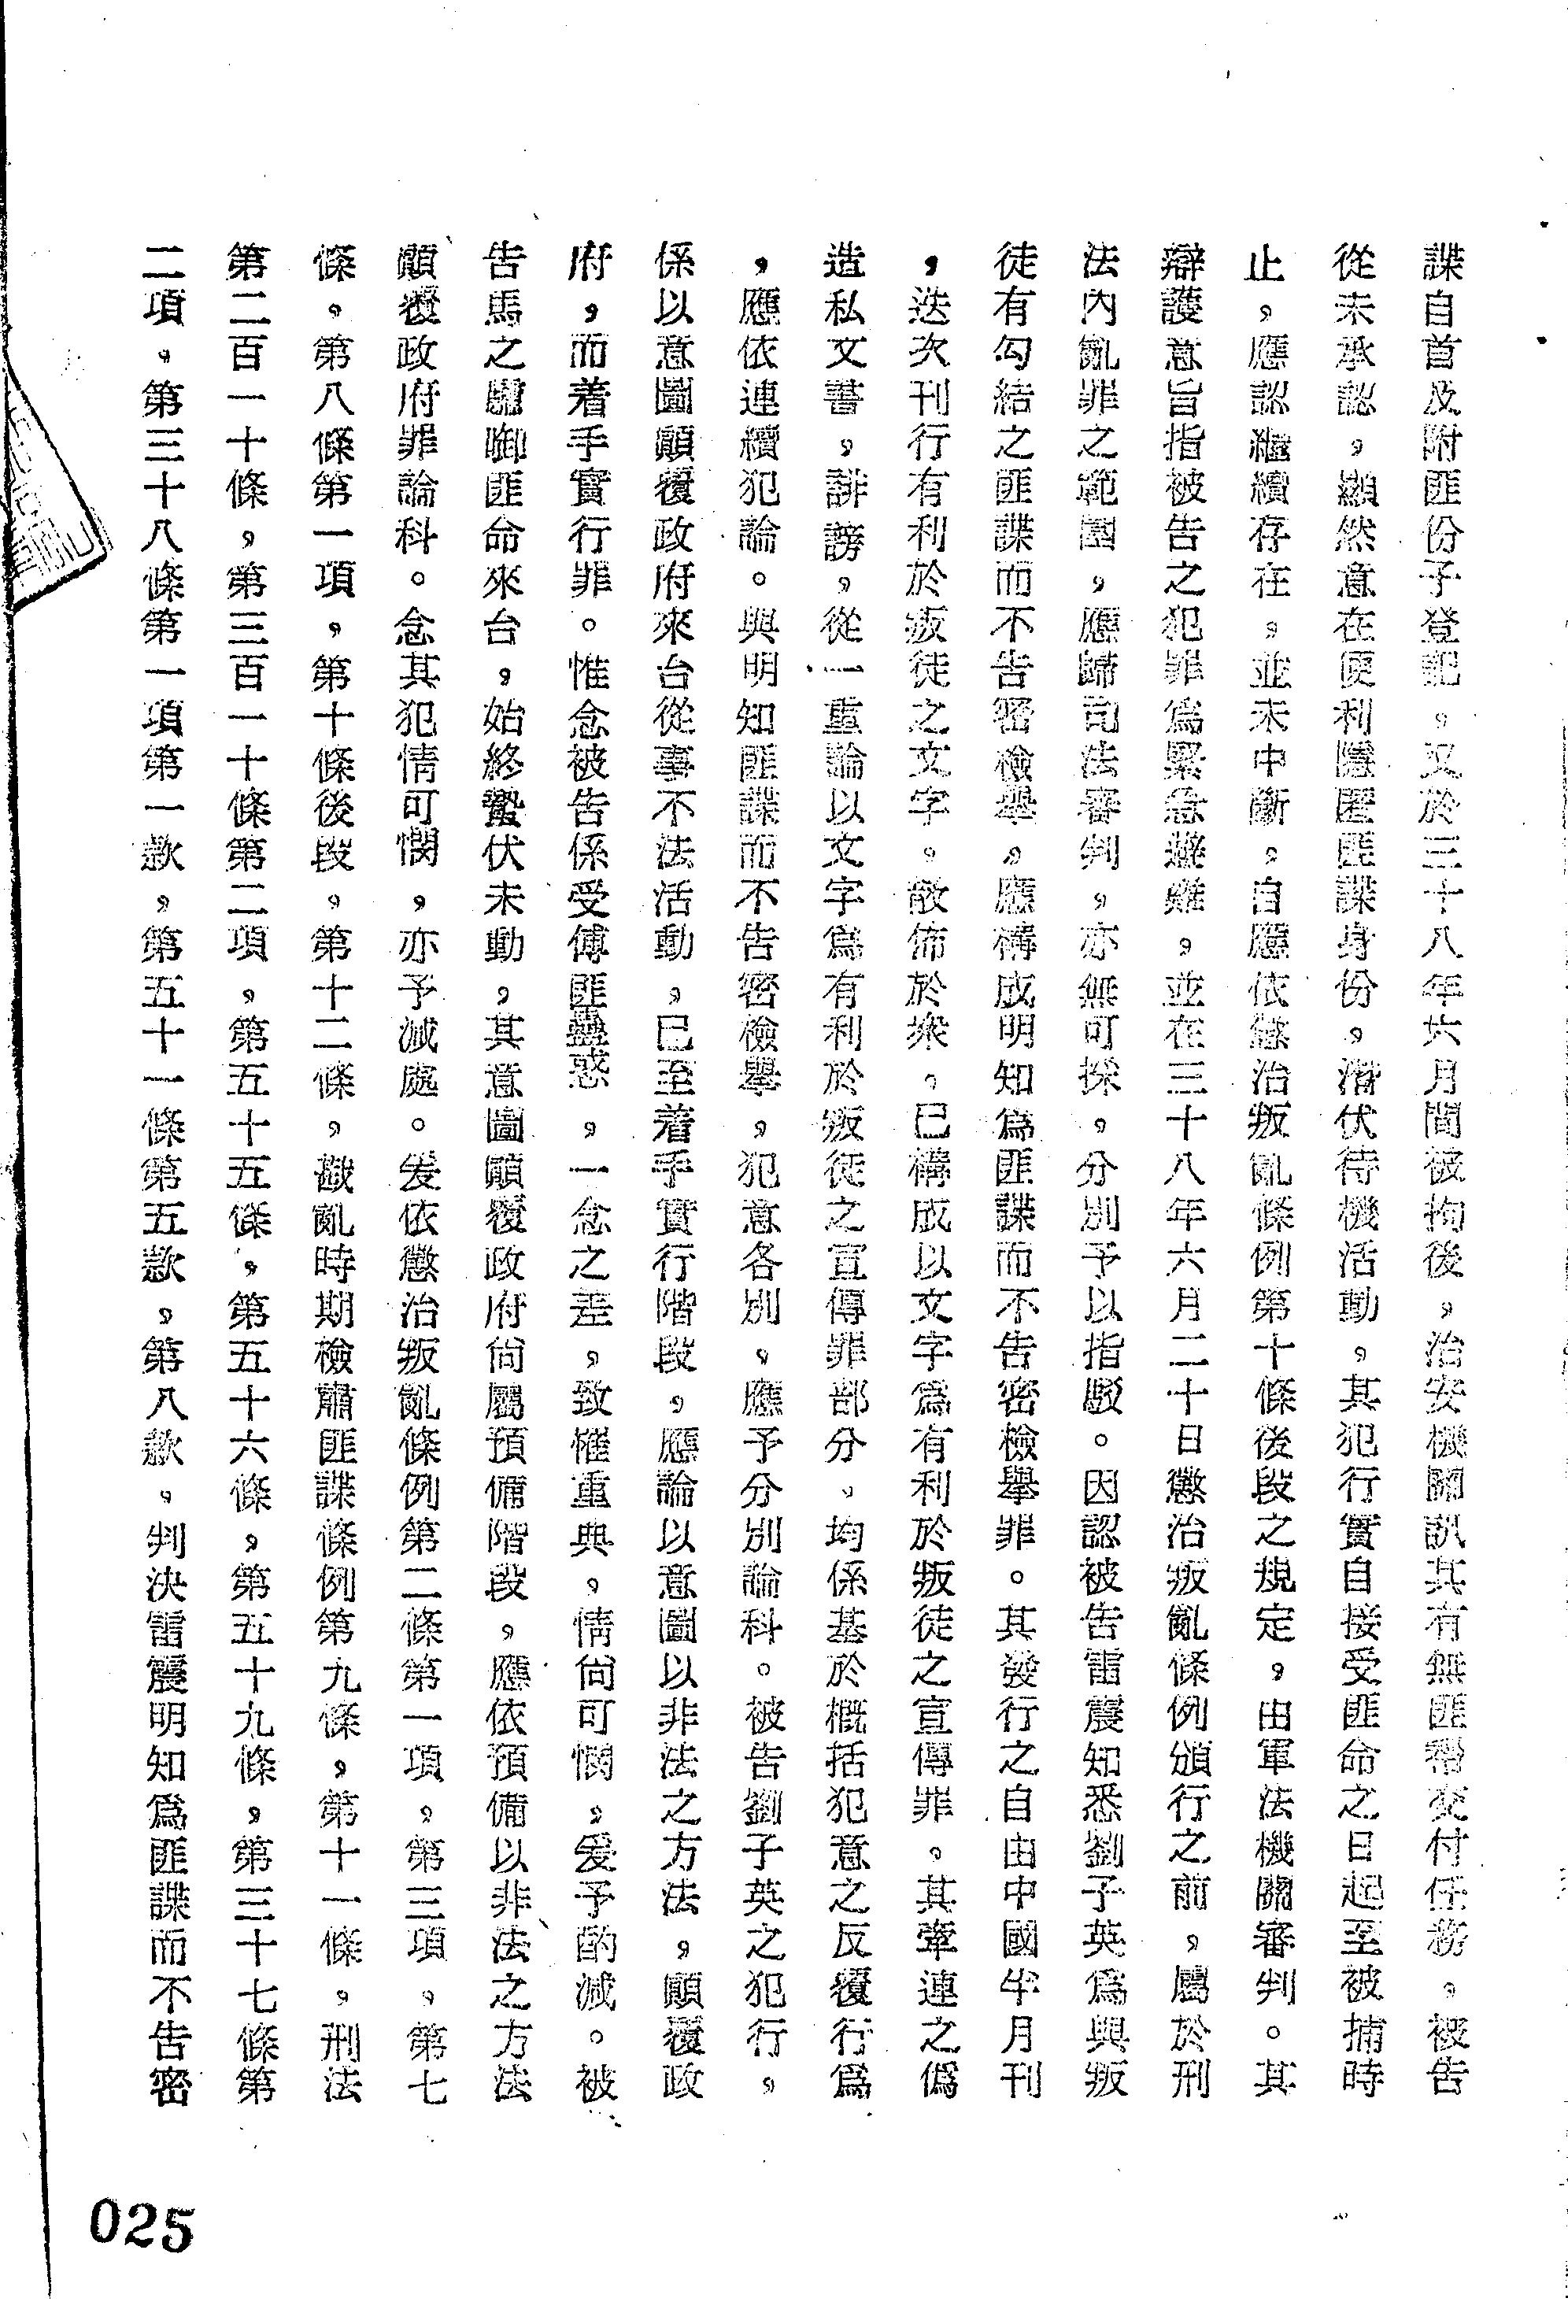 諜自首及附匪份子登記。又於三十八年六月間被拘後，治安機關訊其有無匪幫交付任務，被告
從未承認，顯然意在便利隱匿匪諜身份，潛伏待機活動，其犯行實自接受匪命之日起至被捕時
止，應認繼續存在，並未中斷，自應依懲治叛亂條例第十條後段之規定，由軍法機關審判。其
辯護意旨指被告之犯罪為緊急避難，並在三十八年六月二十日懲治叛亂條例頒行之前，屬於刑
法內亂罪之範圍，應歸司法審判，亦無可採，分別予以指駁。因認被告雷震知悉劉子英為與叛
徒有勾結之匪諜而不告密檢舉，應構成明知為匪諜而不告密檢舉罪。其發行之自由中國半月刊
，迭次刊行有利於叛徒之文字，散佈於眾，已構成以文字為有利於叛徒之宣傳罪。其牽連之偽
造私文書，誹謗，從一重論以文字為有利於叛徒之宣傳罪部分，均係基於概括犯意之反覆行為
，應依連續犯論。與明知匪諜而不告密檢舉，犯意各別，應予分別論科。被告劉子英之犯行，
係以意圖顛覆政府來台從事不法活動，已至着手實行階段，應論以意圖以非法之方法，顛覆政
府，而着手實行罪。惟念被告係受傅匪蠱惑，一念之差，致罹重典，情尚可憫，爰予酌減。被
告馬之驌啣匪命來台，始終蟄伏未動，其意圖顛覆政府尚屬預備階段，應依預備以非法之方法
顛覆政府罪論科。念其犯情可憫，亦予減處。爰依懲治叛亂條例第二條第一項，第三項，第七
條，第八條第一項，第十條後段，第十二條，戡亂時期檢肅匪諜條例第九條，第十一條，刑法
第二百一十條，第三百一十條第二項，第五十五條，第五十六條，第五十九條，第三十七條第
二項，第三十八條第一項第一款，第五十一條第五款，第八款，判決雷震明知為匪諜而不告密
025